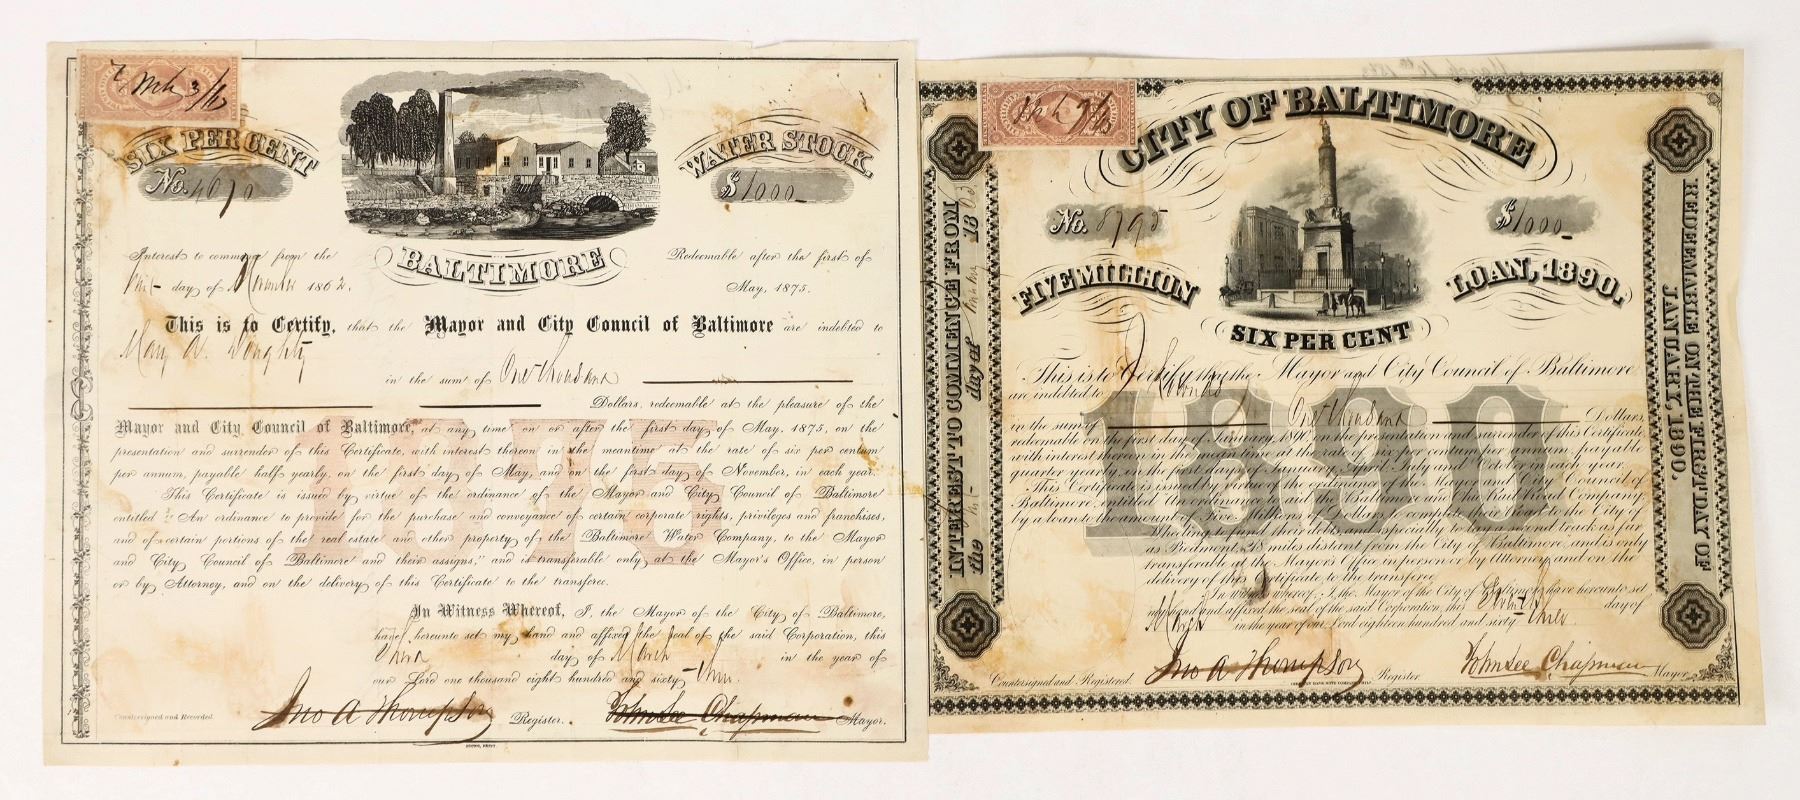 Mch 3/63
SIX PER CENT
WATER STOCK.
No. 4070
$1000
BALTIMORE
Interest to commence from the
First day of November 1862.
Redeemable after the first of
May, 1875.
This is to Certify, that the Mayor and City Council of Baltimore are indebted to
in the sum of One thousand
Dollars, redeemable at the pleasure of the
Mayor and City Council of Baltimore, at any time on or after the first day of May, 1875, on the
presentation and surrender of this Certificate, with interest thereon in the meantime at the rate of six per centum
per annum, payable half yearly, on the first day of May, and on the first day of November, in each year.
This Certificate is issued by virtue of the ordinance of the Mayor and City Council of Baltimore
entitled "An ordinance to provide for the purchase and conveyance of certain corporate rights, privileges and franchises,
and of certain portions of the real estate and other property of the Baltimore Water Company, to the Mayor
and City Council of Baltimore and their assigns;" and is transferable only at the Mayor's Office, in person
or by Attorney, and on the delivery of this Certificate to the transferee.
1875
In Witness Whereof, I the Mayor of the City of Baltimore,
have hereunto set my hand and affixed the seal of the said Corporation, this
Third day of March in the year of
our Lord one thousand eight hundred and sixty - three.
Countersigned and Recorded.
Jno A Thompson Register.
John Lee Chapman Mayor.
CITY OF BALTIMORE
No. 8795
$1000
FIVE MILLION
LOAN, 1890.
SIX PER CENT
INTEREST TO COMMENCE FROM
the 1st day of 18
REDEEMABLE ON THE FIRST DAY OF
JANUARY, 1890.
This is to Certify that the Mayor and City Council of Baltimore
are indebted to
in the sum of One thousand Dollars,
redeemable on the first day of January, 1890, on the presentation and surrender of this Certificate,
with interest thereon in the mean time at the rate of six per centum per annum, payable
quarter yearly, on the first day of January, April, July and October in each year.
This Certificate is issued by virtue of the ordinance of the Mayor and City Council of
Baltimore, entitled "An ordinance to aid the Baltimore and Ohio Rail Road Company,
by a loan to the amount of Five Millions of Dollars, to complete their road to the City of
Wheeling, to fund their debts, and especially to lay a second track as far
as Piedmont, 28 miles distant from the City of Baltimore," and is only
transferable at the Mayor's Office in person or by Attorney, and on the
delivery of this Certificate to the transferee.
1890
In witness whereof, I, the Mayor of the City of Baltimore have hereunto set
my hand and affixed the seal of the said Corporation, this day of
March in the year of our Lord eighteen hundred and sixty three
Countersigned and Registered.
Jno A Thompson Register
John Lee Chapman Mayor